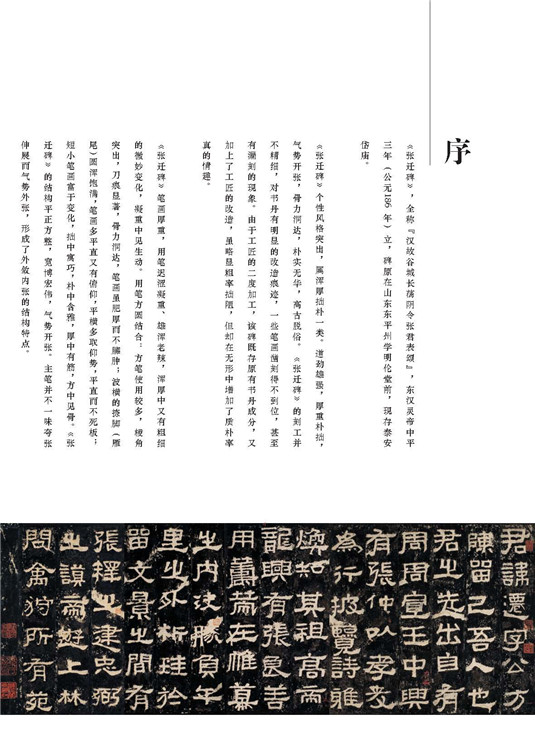 序
《张迁碑》，全称『汉故谷城长荡阴令张君表颂』，东汉灵帝中平
三年（公元186年）立，碑原在山东东平州学明伦堂前，现存泰安
岱庙。
《张迁碑》个性风格突出，属浑厚拙朴一类。遒劲雄强，厚重朴拙，
气势开张，骨力洞达，朴实无华，高古脱俗。《张迁碑》的刻工并
不精细，对书丹有明显的改造痕迹，一些笔画凿刻得不到位，甚至
有漏刻的现象。由于工匠的二度加工，该碑既存原有书丹成分，又
加上了工匠的改造，虽略显粗率拙陋，但却在无形中增加了质朴率
真的情趣。
《张迁碑》笔画厚重，用笔迟涩凝重、雄浑老辣，浑厚中又有粗细
的微妙变化，凝重中见生动。用笔方圆结合：方笔使用较多，棱角
突出，刀痕显著，骨力洞达，笔画虽肥厚而不臃肿；波横的捺脚（雁
尾）圆浑饱满，笔画多平直又有俯仰，平横多取仰势，平直而不死板；
短小笔画富于变化，拙中寓巧，朴中含雅，厚中有筋，方中见骨。《张
迁碑》的结构平正方整，宽博宏伟，气势开张。主笔并不一味夸张
伸展而气势外张，形成了外敛内张的结构特点。
君讳迁字公方
陈留己吾人也
君之先出自有
周周宣王中兴
有张仲以孝友
为行披览诗雅
焕知其祖高帝
龙兴有张良善
用筹策在帷幕
之内决胜负千
里之外析珪于
留文景之间有
张释之建忠弼
之谟帝游上林
问禽狩所有苑